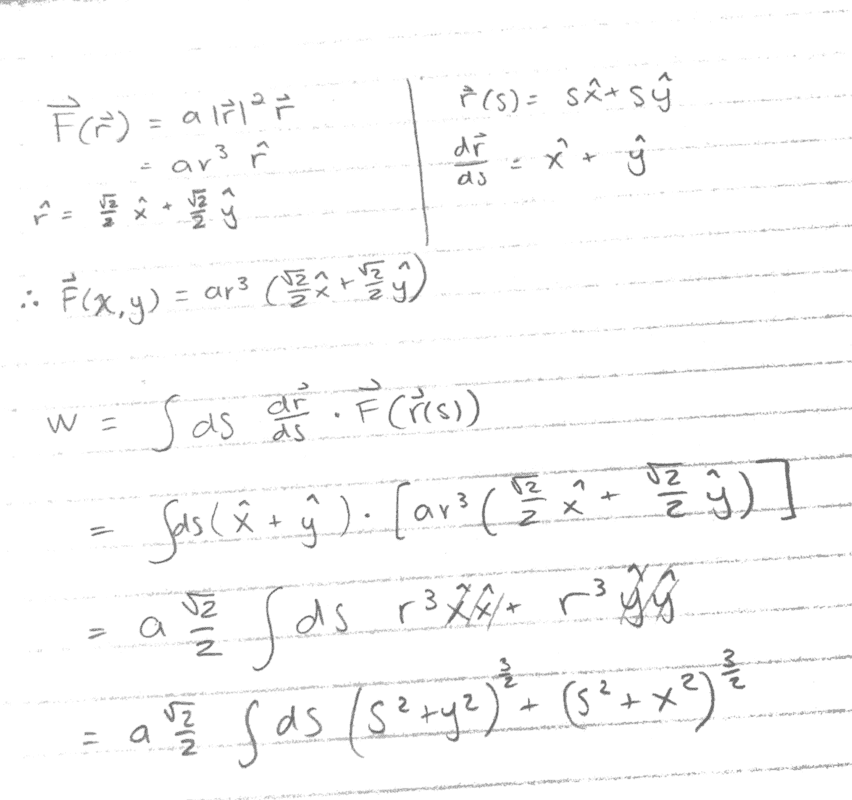 F⃗(r⃗) = a|r⃗|² r⃗
= ar³ r̂
r̂ = √2/2 x̂ + √2/2 ŷ
r⃗(s) = sx̂ + sŷ
dr⃗/ds = x̂ + ŷ
∴ F⃗(x,y) = ar³ (√2/2 x̂ + √2/2 ŷ)
W = ∫ ds dr⃗/ds · F⃗(r⃗(s))
= ∫ds(x̂ + ŷ) · [ar³(√2/2 x̂ + √2/2 ŷ)]
= a √2/2 ∫ ds r³ x̂x̂ + r³ ŷŷ
= a √2/2 ∫ ds (s²+y²)^(3/2) + (s²+x²)^(3/2)